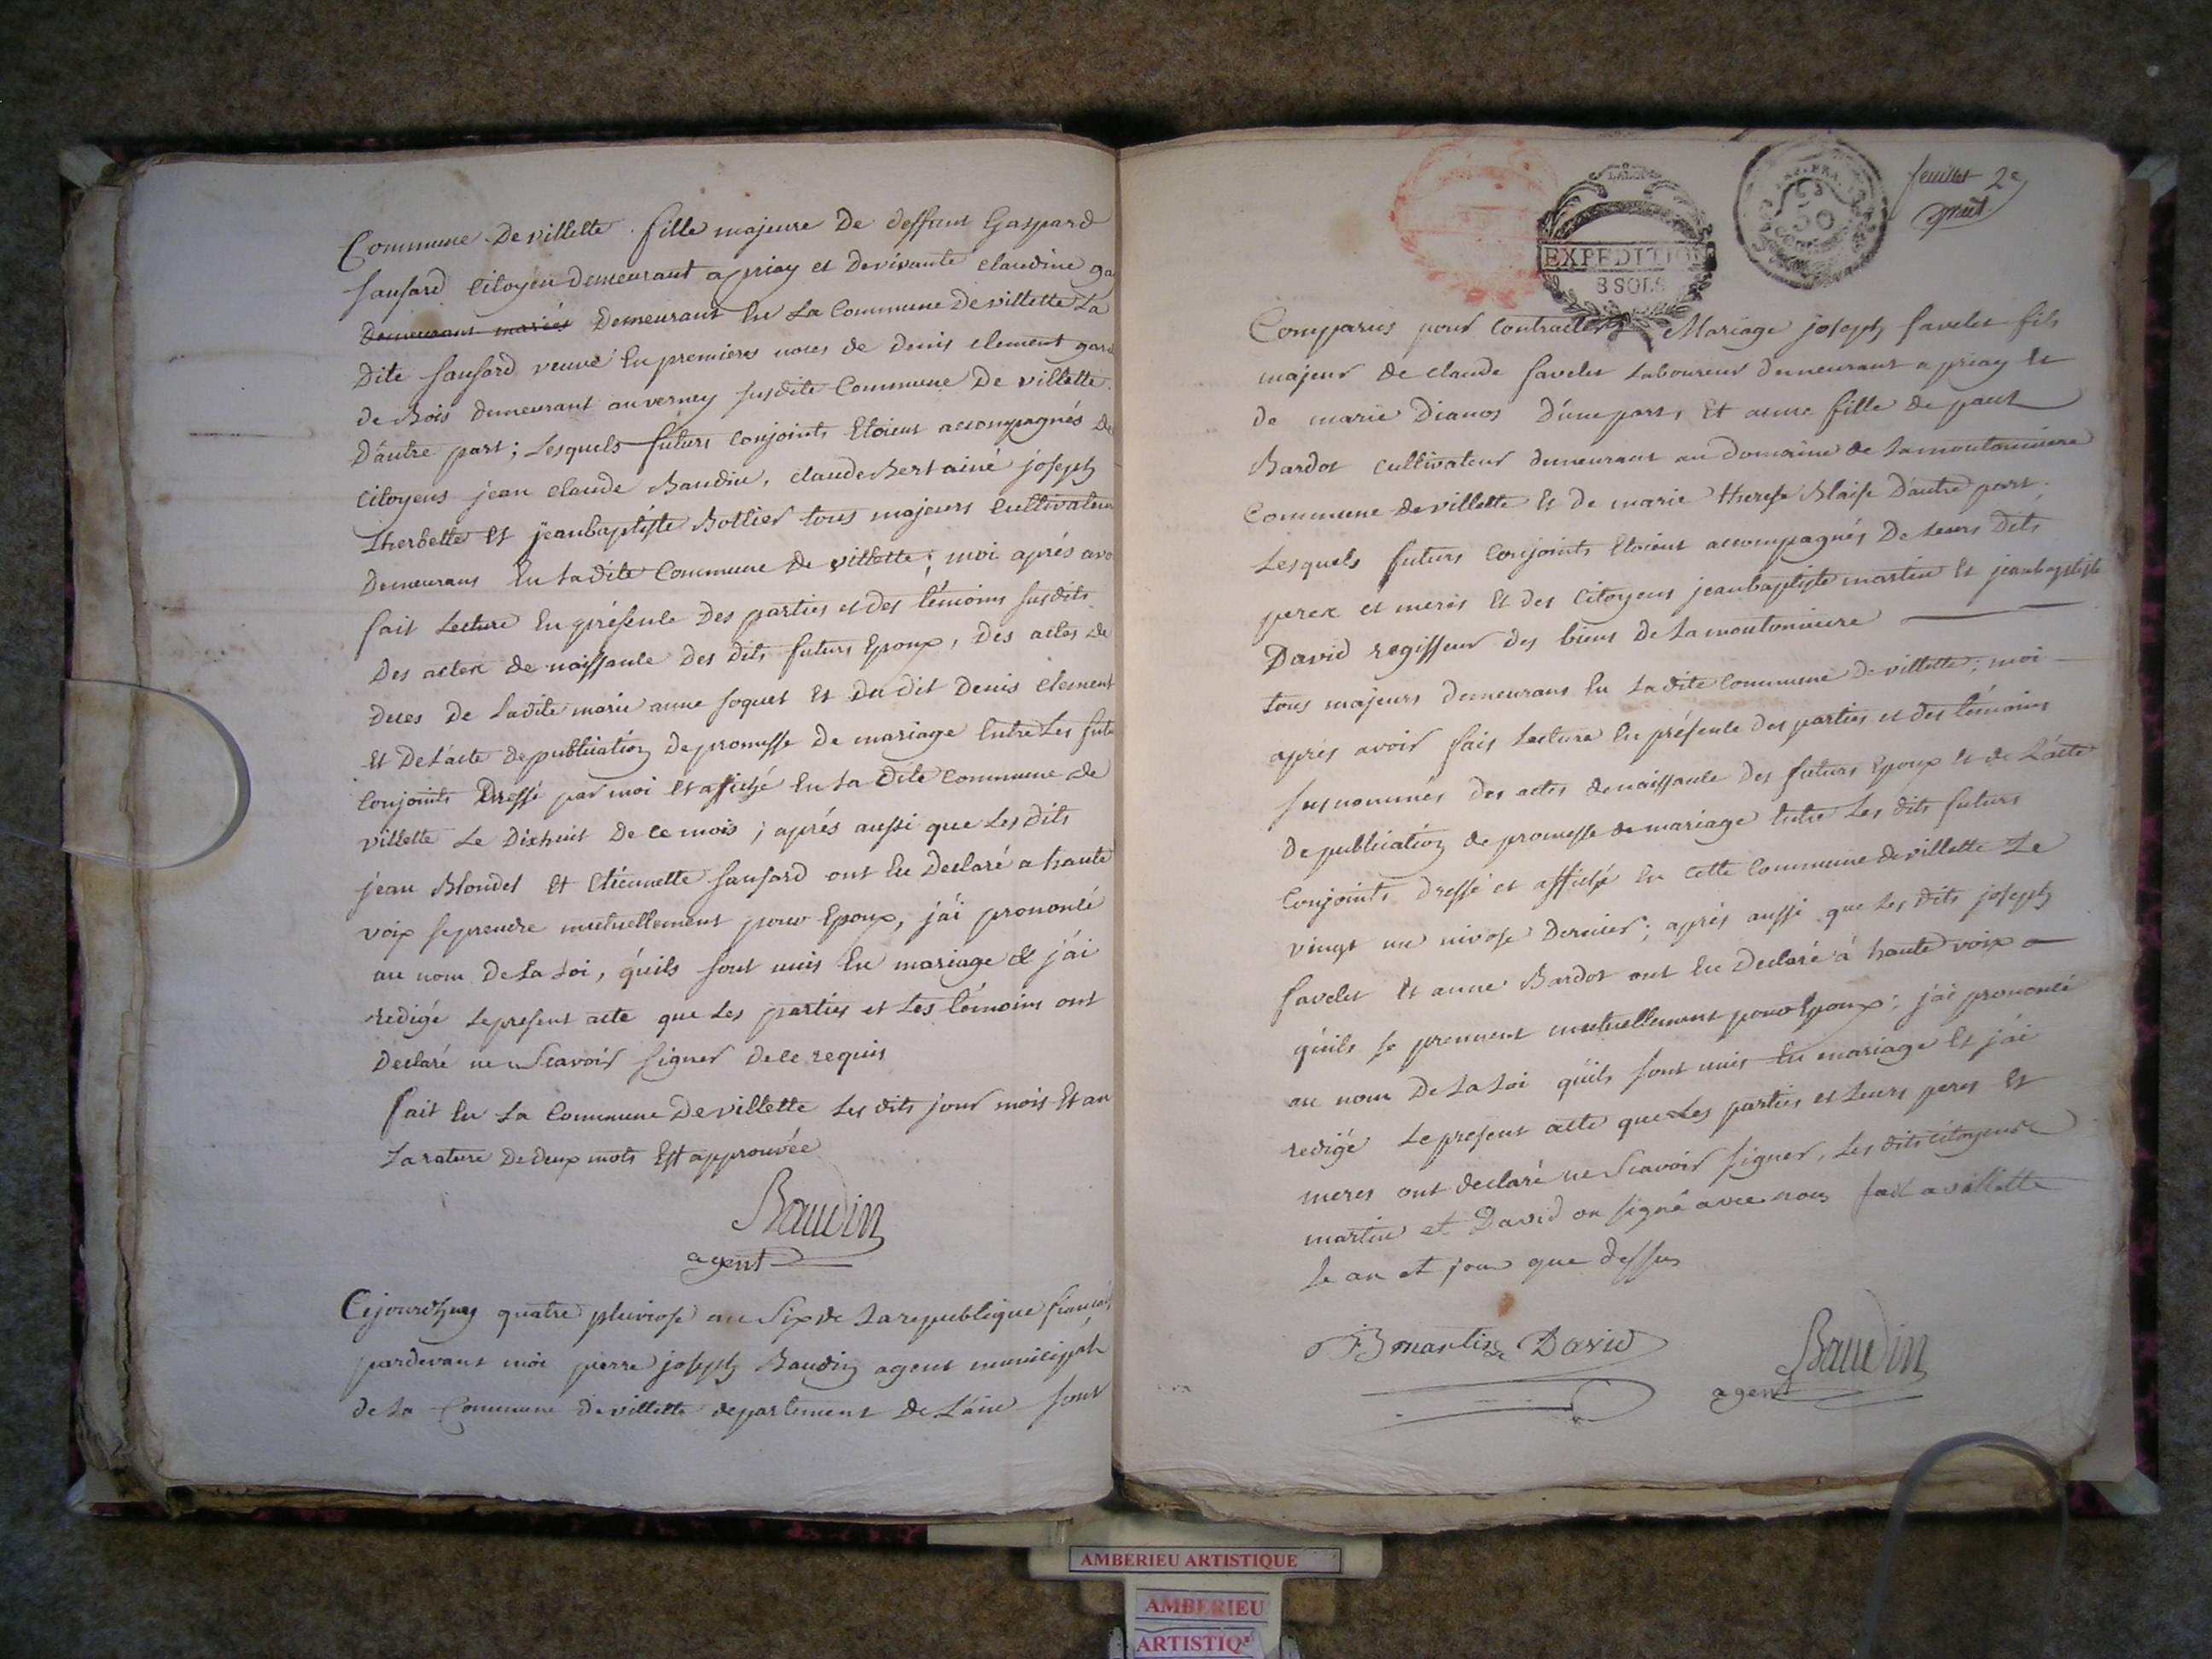 Commune de villette fille majeure de deffunt Gaspard
sansard Citoyen demeurant a priay et de vivante claudine
demeurant mariés demeurant en la commune de villette la
dite sansard veuve en premieres noces de denis clement garde
de Bois demeurant au verney susdite commune de villette
d'autre part ; lesquels futurs conjoints etoient accompagnés de
citoyens jean claude Baudin, claude Bert ainé joseph
Lherbette et jeanbaptiste Bollier tous majeurs cultivateur
demeurans en ladite commune de villette ; moi aprés avo
fait lecture en présence des parties et des témoins susdits
des actex de naissance des dits futurs epoux, des actes de
deces de ladite marie anne soquet et du dit denis clement
et de l'acte de publication de promesse de mariage entre les futu
conjoints dressé par moi et affiché en la dite commune de
villette le dixhuit de ce mois ; aprés aussi que les dits
jean Blondel et etiennette sansard ont eu declaré a haute
voix se prendre mutuellement pour epoux, j'ai prononcé
au nom de la loi, qu'ils sont unis en mariage & j'ai
redigé le present acte que les parties et les témoins ont
declaré ne scavoir signer de ce requis
fait en la commune de villette les dits jour mois et an
la rature de deux mots est approuvée
Baudin
agent
Cejourdhuy quatre pluviose an Six de la republique français
pardevant moi pierre joseph Baudin agent municipal
de la Commune de villette departement de l'ain sont
feuillet 2e
EXPEDITION
8 SOLS
50
Comparus pour contracter Mariage joseph favelet fils
majeur de claude favelet laboureur demeurant a priay et
de marie Dianos d'une part, et anne fille de paul
Bardot cultivateur demeurant au domaine de lamoutonniere
commune de villette et de marie therese Blaise d'autre part ;
lesquels futurs conjoints etoient accompagnés de leurs dits
perex et meres et des citoyens jeanbaptiste martin et jeanbaptiste
David regisseur des biens de lamoutonniere
tous majeurs demeurans en ladite commune de villette ; moi
aprés avoir fait lecture en présence des parties et des témoins
susnommés des actes de naissance des futurs epoux et de l'acte
de publication de promesse de mariage entre les dits futurs
conjoints dressé et affiché en cette commune de villette le
vingt un nivose dernier ; aprés aussi que les dits joseph
favelet et anne Bardot ont eu declaré à haute voix
qu'ils se prennent mutuellement pour epoux ; j'ai prononcé
au nom de la loi qu'ils sont unis en mariage et j'ai
redigé le present acte que les parties et leurs peres et
meres ont declaré ne scavoir signer, les dits citoyens
martin et David on signé avec nous fait a villette
le an et jour que dessus
JB martin David
Baudin
agent
AMBERIEU ARTISTIQUE
AMBERIEU
ARTISTIQ